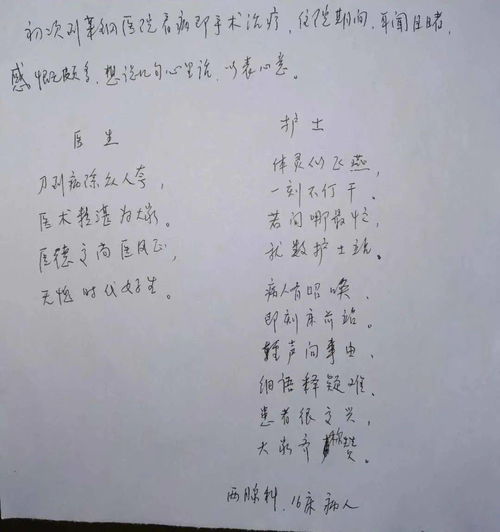 初次到革钢医院看病即手术治疗,住院期间,耳闻目睹,
感慨颇多,想说几句心里话,以表心意。
医生
刀到病除众人夸,
医术精湛为大家。
医德高尚医风正,
无愧时代好医生。
护士
体灵似飞燕,
一刻不停干。
若问哪最忙,
就数护士站。
病人有呼唤,
即刻床前站。
轻声问事由,
细语释疑难。
患者很高兴,
大家齐称赞。
两腺科,16床病人